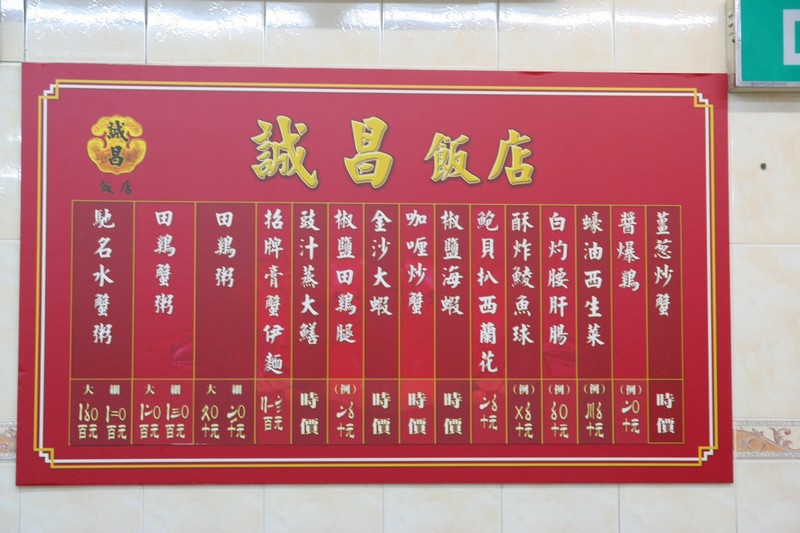 誠昌飯店
誠昌
飯店
薑葱炒蟹
時價
醬爆鷄
(例)
十元
蠔油西生菜
(例)
十元
白灼腰肝腸
(例)
十元
酥炸鯪魚球
(例)
十元
鮑貝扒西蘭花
十元
椒鹽海蝦
時價
咖喱炒蟹
時價
金沙大蝦
時價
椒鹽田鷄腿
(例)
十元
豉汁蒸大鱔
時價
招牌膏蟹伊麵
百元
田鷄粥
大 細
十元 十元
田鷄蟹粥
大 細
百元 百元
馳名水蟹粥
大 細
百元 百元